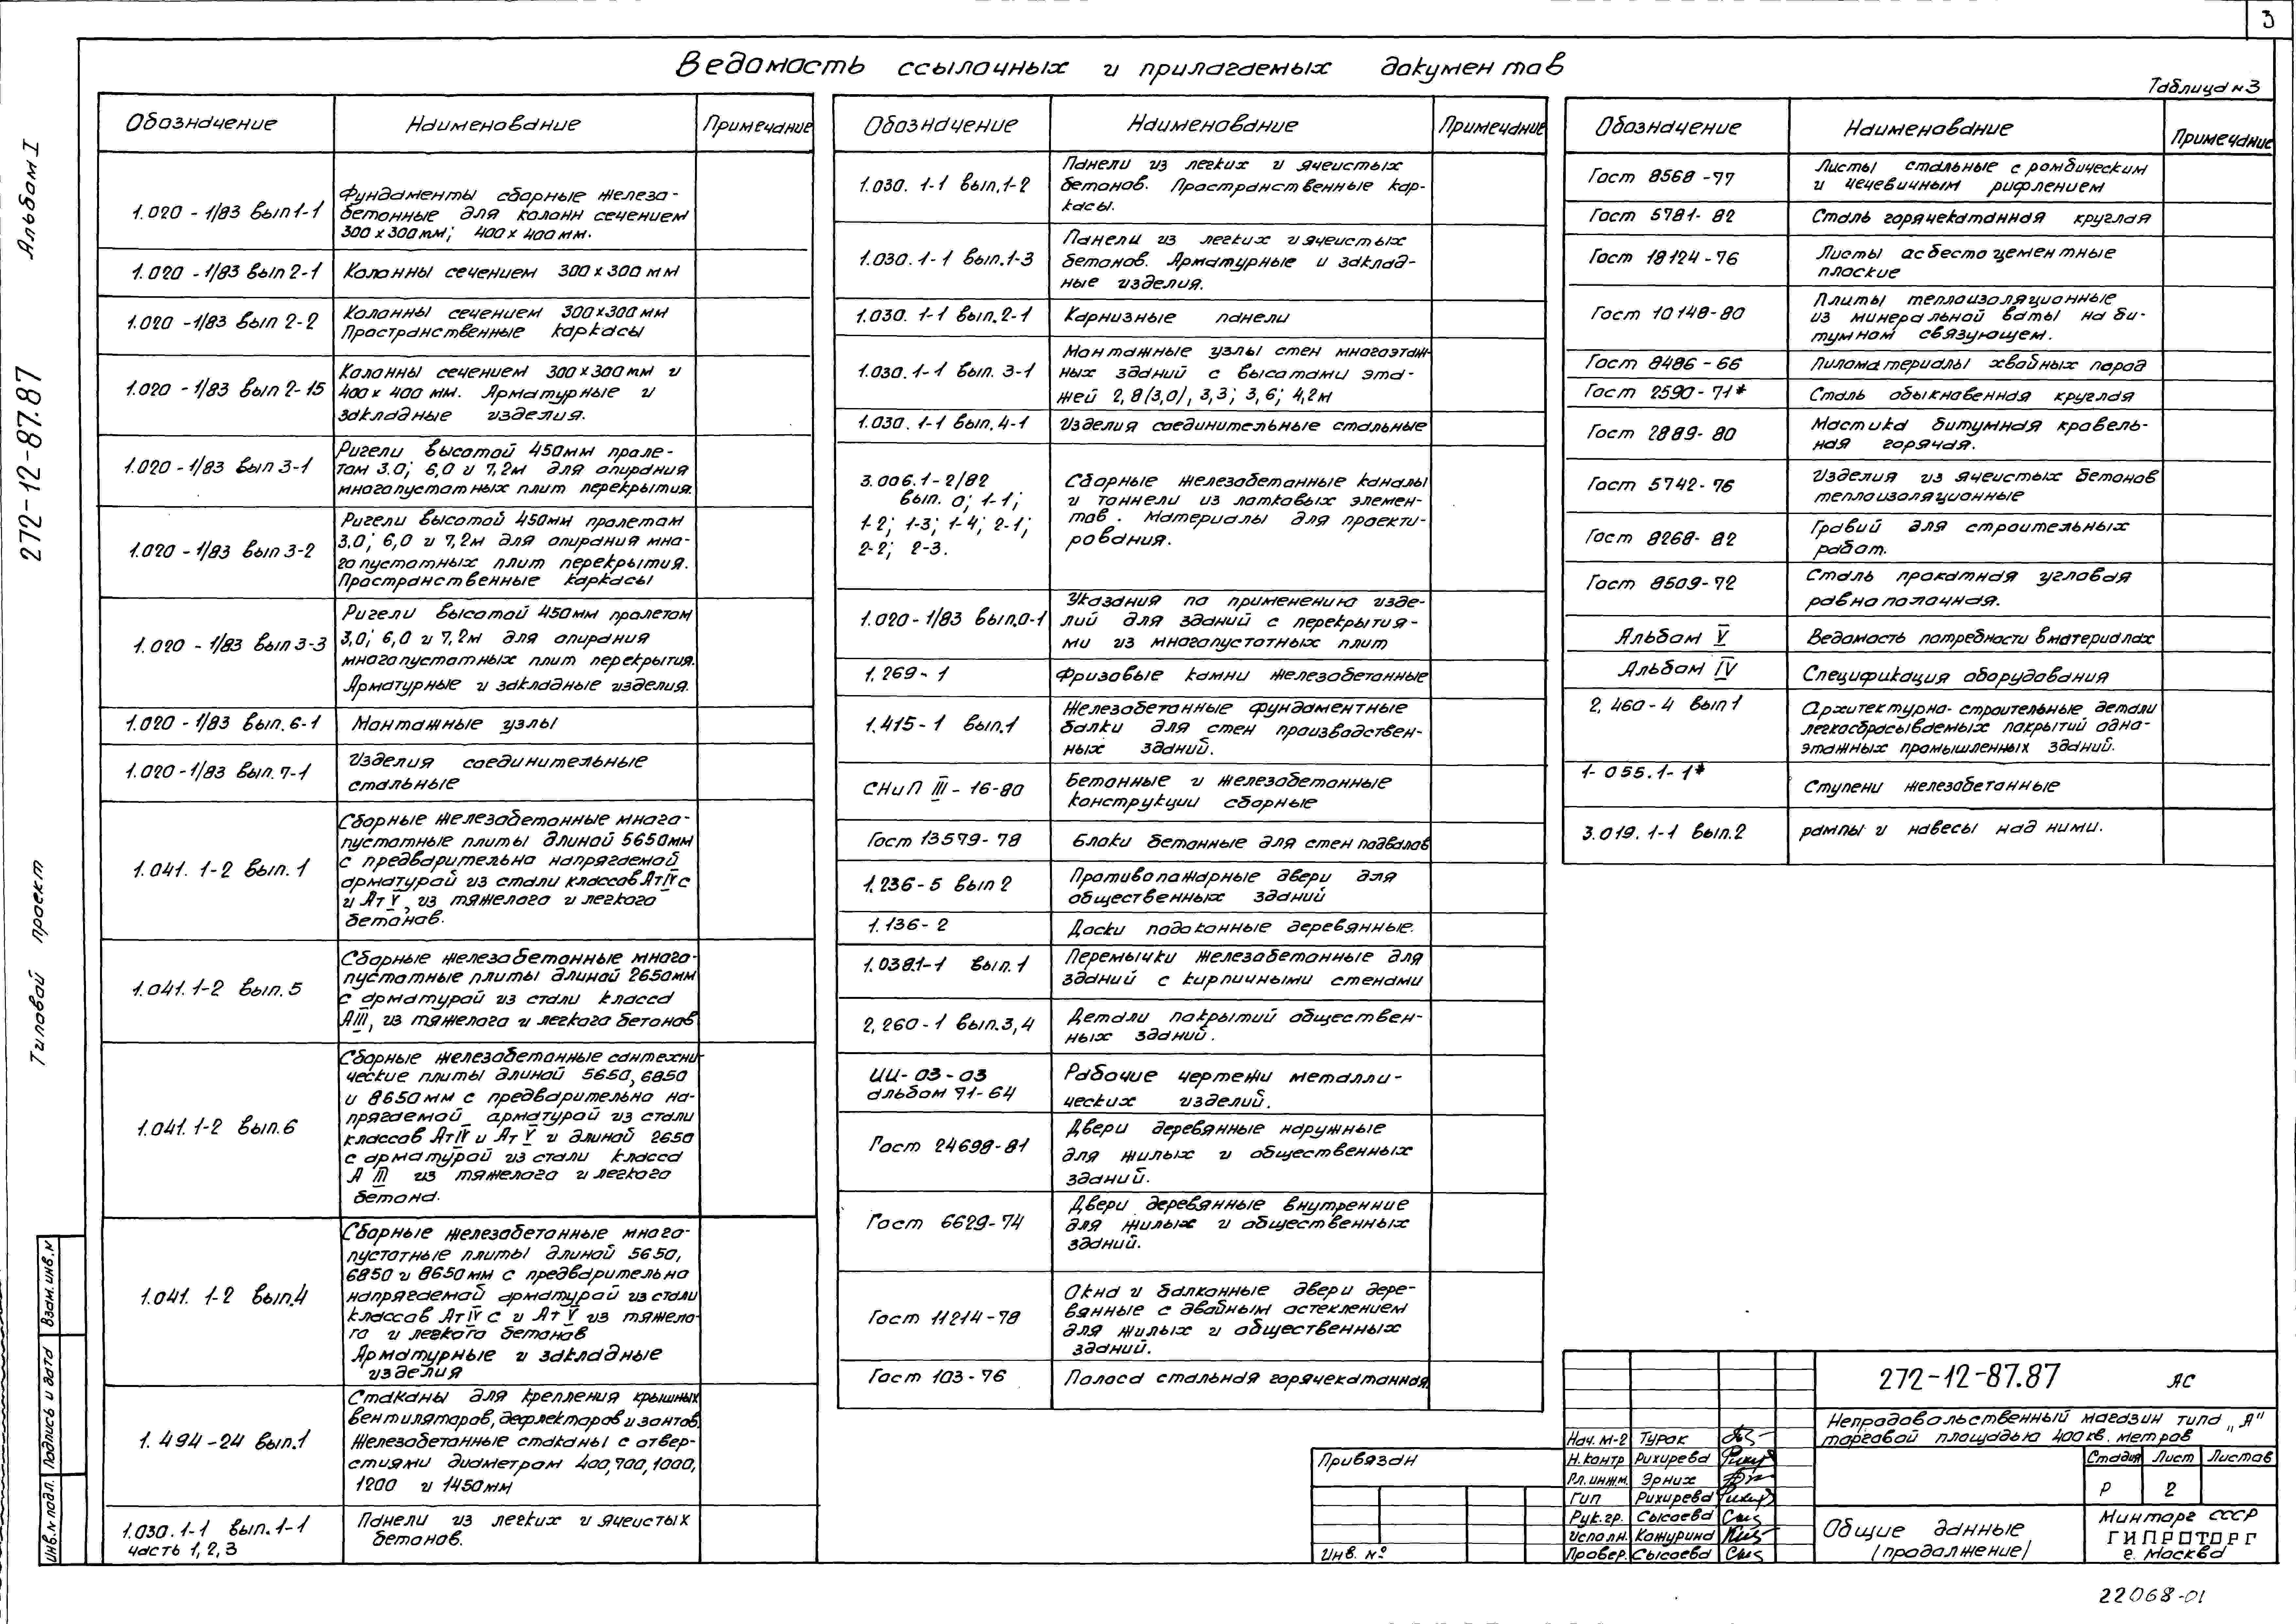 3
Ведомость ссылочных и прилагаемых документов
Таблица №3
Альбом I
272-12-87.87
Типовой проект
Обозначение Наименование Примечание
1.020-1/83 вып 1-1
Фундаменты сборные железо-
бетонные для колонн сечением
300х300мм; 400х400мм.
1.020-1/83 вып 2-1 Колонны сечением 300х300мм
1.020-1/83 вып 2-2
Колонны сечением 300х300мм
Пространственные каркасы
1.020-1/83 вып 2-15
Колонны сечением 300х300мм и
400х400 мм. Арматурные и
закладные изделия.
1.020-1/83 вып 3-1
Ригели высотой 450мм проле-
том 3.0; 6,0 и 7,2м для опирания
многопустотных плит перекрытия.
1.020-1/83 вып 3-2
Ригели высотой 450мм пролетом
3.0; 6,0 и 7,2м для опирания мно-
гопустотных плит перекрытия.
Пространственные каркасы
1.020-1/83 вып 3-3
Ригели высотой 450мм пролетом
3,0; 6,0 и 7,2м для опирания
многопустотных плит перекрытия.
Арматурные и закладные изделия.
1.020-1/83 вып. 6-1 Монтажные узлы
1.020-1/83 вып. 7-1
Изделия соединительные
стальные
1.041.1-2 вып.1
Сборные железобетонные много-
пустотные плиты длиной 5650мм
с предварительно напрягаемой
арматурой из стали классов АтIVс
и АтV, из тяжелого и легкого
бетонов.
1.041.1-2 вып.5
Сборные железобетонные много-
пустотные плиты длиной 2650мм
с арматурой из стали класса
АIII, из тяжелого и легкого бетонов
1.041.1-2 вып.6
Сборные железобетонные сантехни-
ческие плиты длиной 5650, 6850
и 8650мм с предварительно на-
прягаемой арматурой из стали
классов АтIV и АтV и длиной 2650
с арматурой из стали класса
А III из тяжелого и легкого
бетона.
1.041.1-2 вып.4
Сборные железобетонные много-
пустотные плиты длиной 5650,
6850 и 8650мм с предварительно
напрягаемой арматурой из стали
классов АтIV с и АтV из тяжело-
го и легкого бетонов
Арматурные и закладные
изделия
1.494-24 вып.1
Стаканы для крепления крышных
вентиляторов, дефлекторов и зонтов.
Железобетонные стаканы с отвер-
стиями диаметром 400,700,1000,
1200 и 1450мм
1.030.1-1 вып.1-1
часть 1,2,3
Панели из легких и ячеистых
бетонов.
Обозначение Наименование Примечание
1.030.1-1 вып.1-2
Панели из легких и ячеистых
бетонов. Пространственные кар-
касы.
1.030.1-1 вып.1-3
Панели из легких и ячеистых
бетонов. Арматурные и заклад-
ные изделия.
1.030.1-1 вып.2-1 Карнизные панели
1.030.1-1 вып. 3-1
Монтажные узлы стен многоэтаж-
ных зданий с высотами эта-
жей 2,8(3,0), 3,3; 3,6; 4,2м
1.030.1-1 вып.4-1 Изделия соединительные стальные
3.006.1-2/82
вып. 0; 1-1;
1-2; 1-3; 1-4; 2-1;
2-2; 2-3.
Сборные железобетонные каналы
и тоннели из лотковых элемен-
тов. Материалы для проекти-
рования.
1.020-1/83 вып.0-1
Указания по применению изде-
лий для зданий с перекрытия-
ми из многопустотных плит
1.269-1 Фризовые камни железобетонные
1.415-1 вып.1
Железобетонные фундаментные
балки для стен производствен-
ных зданий.
СНиП III-16-80
Бетонные и железобетонные
конструкции сборные
Гост 13579-78 Блоки бетонные для стен подвалов
1.236-5 вып 2
Противопожарные двери для
общественных зданий
1.136-2 Доски подоконные деревянные.
1.038.1-1 вып.1
Перемычки железобетонные для
зданий с кирпичными стенами
2.260-1 вып.3,4
Детали покрытий обществен-
ных зданий.
ИИ-03-03
альбом 71-64
Рабочие чертежи металли-
ческих изделий.
Гост 24698-81
Двери деревянные наружные
для жилых и общественных
зданий.
Гост 6629-74
Двери деревянные внутренние
для жилых и общественных
зданий.
Гост 11214-78
Окна и балконные двери дере-
вянные с двойным остеклением
для жилых и общественных
зданий.
Гост 103-76 Полоса стальная горячекатанная.
Обозначение Наименование Примечание
Гост 8568-77
Листы стальные с ромбическим
и чечевичным рифлением
Гост 5781-82 Сталь горячекатанная круглая
Гост 18124-76
Листы асбестоцементные
плоские
Гост 10140-80
Плиты теплоизоляционные
из минеральной ваты на би-
тумном связующем.
Гост 8486-66 Пиломатериалы хвойных пород
Гост 2590-71* Сталь обыкновенная круглая
Гост 2889-80
Мастика битумная кровель-
ная горячая.
Гост 5742-76
Изделия из ячеистых бетонов
теплоизоляционные
Гост 8268-82
Гравий для строительных
работ.
Гост 8509-72
Сталь прокатная угловая
равнополочная.
Альбом V Ведомость потребности в материалах
Альбом IV Спецификация оборудования
2.460-4 вып 1
Архитектурно-строительные детали
легкосбрасываемых покрытий одно-
этажных промышленных зданий.
1-055.1-1* Ступени железобетонные
3.019.1-1 вып.2 рампы и навесы над ними.
Взам. инв. №
Подпись и дата
Инв. № подл.
Привязан
Инв. №
Нач. М-2 Турок
Н.контр Рихирева
Гл.инжм. Эрних
Гип Рихирева
Рук.гр. Сысоева
Исполн. Кожурина
Провер. Сысоева
272-12-87.87 АС
Непродовольственный магазин типа „А"
торговой площадью 400 кв. метров
Стадия Лист Листов
Р 2
Общие данные
/продолжение/
Минторг СССР
ГИПРОТОРГ
г. Москва
22068-01